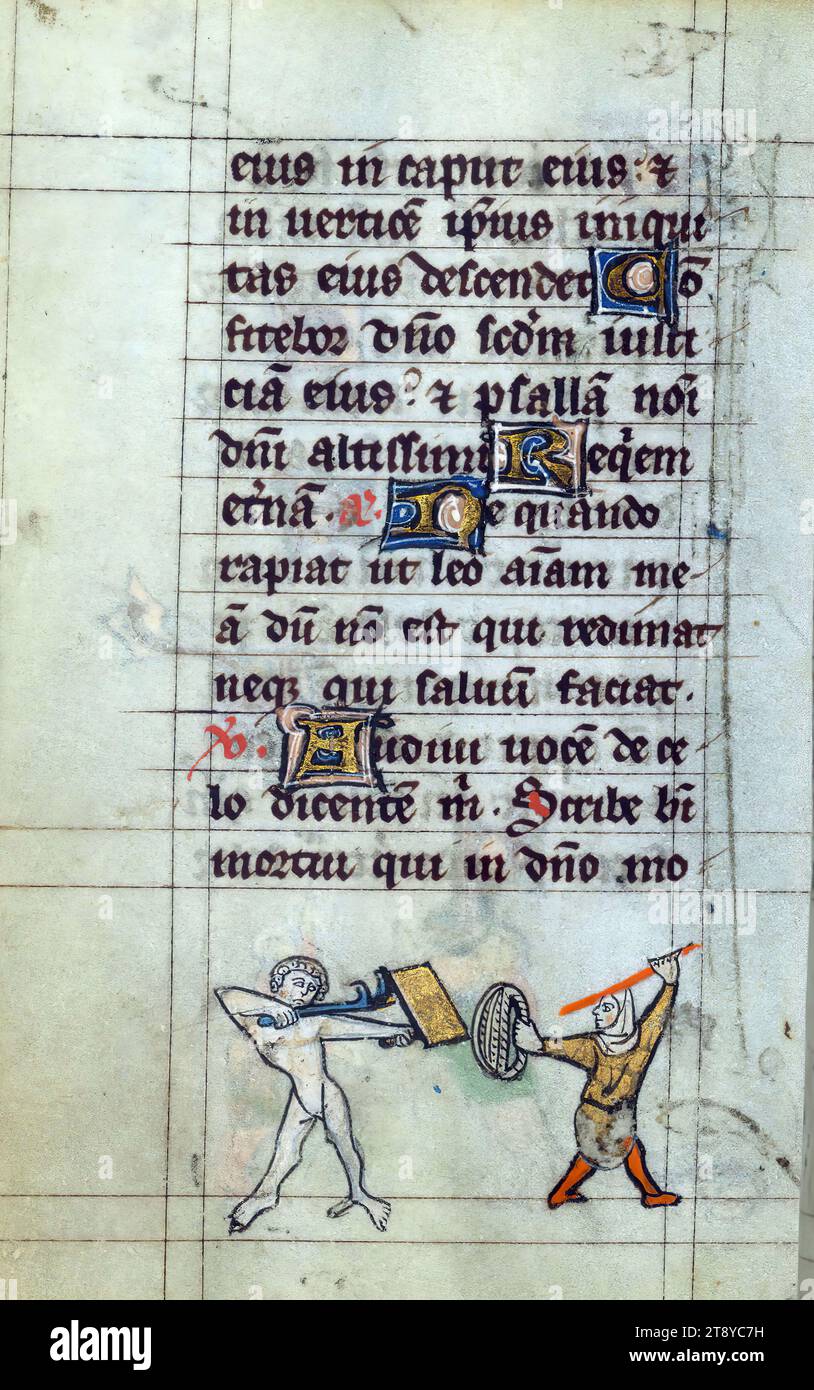 eius in caput eius: ⁊
in verticē ip̄ius iniqui
tas eius descendet Cō
fitebor dn̄o scd̄m iusti
ciā eius? ⁊ psallā noī
dn̄i altissimi Req̄em
et̄nā. a. Ne quando
rapiat ut leo aīam me-
ā dū nō est qui redimat
neq; qui saluū faciat.
v. Audiui uocē de ce
lo dicentē m̄. Scribe bn̄
mortui qui in dn̄o mo
alamy
Image ID: 2T8YC7H
www.alamy.com